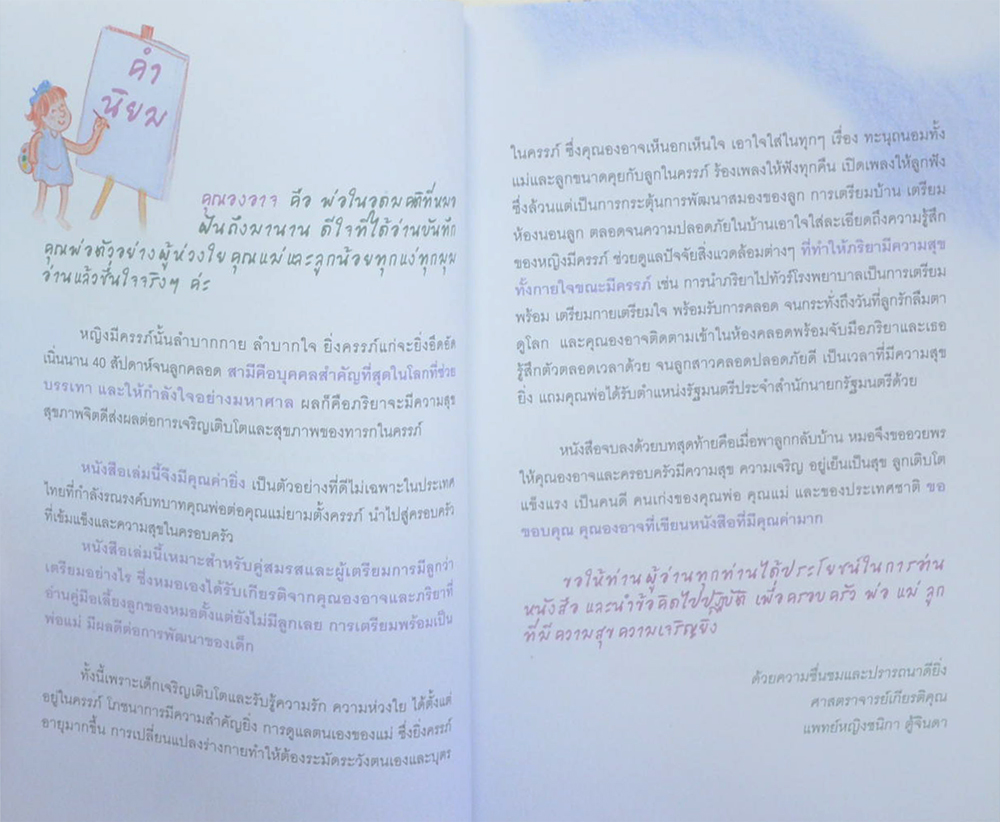 คำ
นิยม
คุณองอาจ คือ พ่อในอุดมคติที่หมอ
ฝันถึงมานาน ดีใจที่ได้อ่านบันทึก
คุณพ่อตัวอย่างผู้ห่วงใย คุณแม่และลูกน้อยทุกแง่ทุกมุม
อ่านแล้วชื่นใจจริงๆ ค่ะ
หญิงมีครรภ์นั้นลำบากกาย ลำบากใจ ยิ่งครรภ์แก่จะยิ่งอึดอัด
เนิ่นนาน 40 สัปดาห์จนลูกคลอด สามีคือบุคคลสำคัญที่สุดในโลกที่ช่วย
บรรเทา และให้กำลังใจอย่างมหาศาล ผลก็คือภริยาจะมีความสุข
สุขภาพจิตดีส่งผลต่อการเจริญเติบโตและสุขภาพของทารกในครรภ์
หนังสือเล่มนี้จึงมีคุณค่ายิ่ง เป็นตัวอย่างที่ดีไม่เฉพาะในประเทศ
ไทยที่กำลังรณรงค์บทบาทคุณพ่อต่อคุณแม่ยามตั้งครรภ์ นำไปสู่ครอบครัว
ที่เข้มแข็งและความสุขในครอบครัว
หนังสือเล่มนี้เหมาะสำหรับคู่สมรสและผู้เตรียมการมีลูกว่า
เตรียมอย่างไร ซึ่งหมอเองได้รับเกียรติจากคุณองอาจและภริยาที่
อ่านคู่มือเลี้ยงลูกของหมอตั้งแต่ยังไม่มีลูกเลย การเตรียมพร้อมเป็น
พ่อแม่ มีผลดีต่อการพัฒนาของเด็ก
ทั้งนี้เพราะเด็กเจริญเติบโตและรับรู้ความรัก ความห่วงใย ได้ตั้งแต่
อยู่ในครรภ์ โภชนาการมีความสำคัญยิ่ง การดูแลตนเองของแม่ ซึ่งยิ่งครรภ์
อายุมากขึ้น การเปลี่ยนแปลงร่างกายทำให้ต้องระมัดระวังตนเองและบุตร
ในครรภ์ ซึ่งคุณองอาจเห็นอกเห็นใจ เอาใจใส่ในทุกๆ เรื่อง ทะนุถนอมทั้ง
แม่และลูกขนาดคุยกับลูกในครรภ์ ร้องเพลงให้ฟังทุกคืน เปิดเพลงให้ลูกฟัง
ซึ่งล้วนแต่เป็นการกระตุ้นการพัฒนาสมองของลูก การเตรียมบ้าน เตรียม
ห้องนอนลูก ตลอดจนความปลอดภัยในบ้านเอาใจใส่ละเอียดถึงความรู้สึก
ของหญิงมีครรภ์ ช่วยดูแลปัจจัยสิ่งแวดล้อมต่างๆ ที่ทำให้ภริยามีความสุข
ทั้งกายใจขณะมีครรภ์ เช่น การนำภริยาไปทัวร์โรงพยาบาลเป็นการเตรียม
พร้อม เตรียมกายเตรียมใจ พร้อมรับการคลอด จนกระทั่งถึงวันที่ลูกรักลืมตา
ดูโลก และคุณองอาจติดตามเข้าในห้องคลอดพร้อมจับมือภริยาและเธอ
รู้สึกตัวตลอดเวลาด้วย จนลูกสาวคลอดปลอดภัยดี เป็นเวลาที่มีความสุข
ยิ่ง แถมคุณพ่อได้รับตำแหน่งรัฐมนตรีประจำสำนักนายกรัฐมนตรีด้วย
หนังสือจบลงด้วยบทสุดท้ายคือเมื่อพาลูกกลับบ้าน หมอจึงขออวยพร
ให้คุณองอาจและครอบครัวมีความสุข ความเจริญ อยู่เย็นเป็นสุข ลูกเติบโต
แข็งแรง เป็นคนดี คนเก่งของคุณพ่อ คุณแม่ และของประเทศชาติ ขอ
ขอบคุณ คุณองอาจที่เขียนหนังสือที่มีคุณค่ามาก
ขอให้ท่านผู้อ่านทุกท่านได้ประโยชน์ในการอ่าน
หนังสือ และนำข้อคิดไปปฏิบัติ เพื่อครอบครัว พ่อ แม่ ลูก
ที่มีความสุขความเจริญยิ่ง
ด้วยความชื่นชมและปรารถนาดียิ่ง
ศาสตราจารย์เกียรติคุณ
แพทย์หญิงชนิกา ตู้จินดา